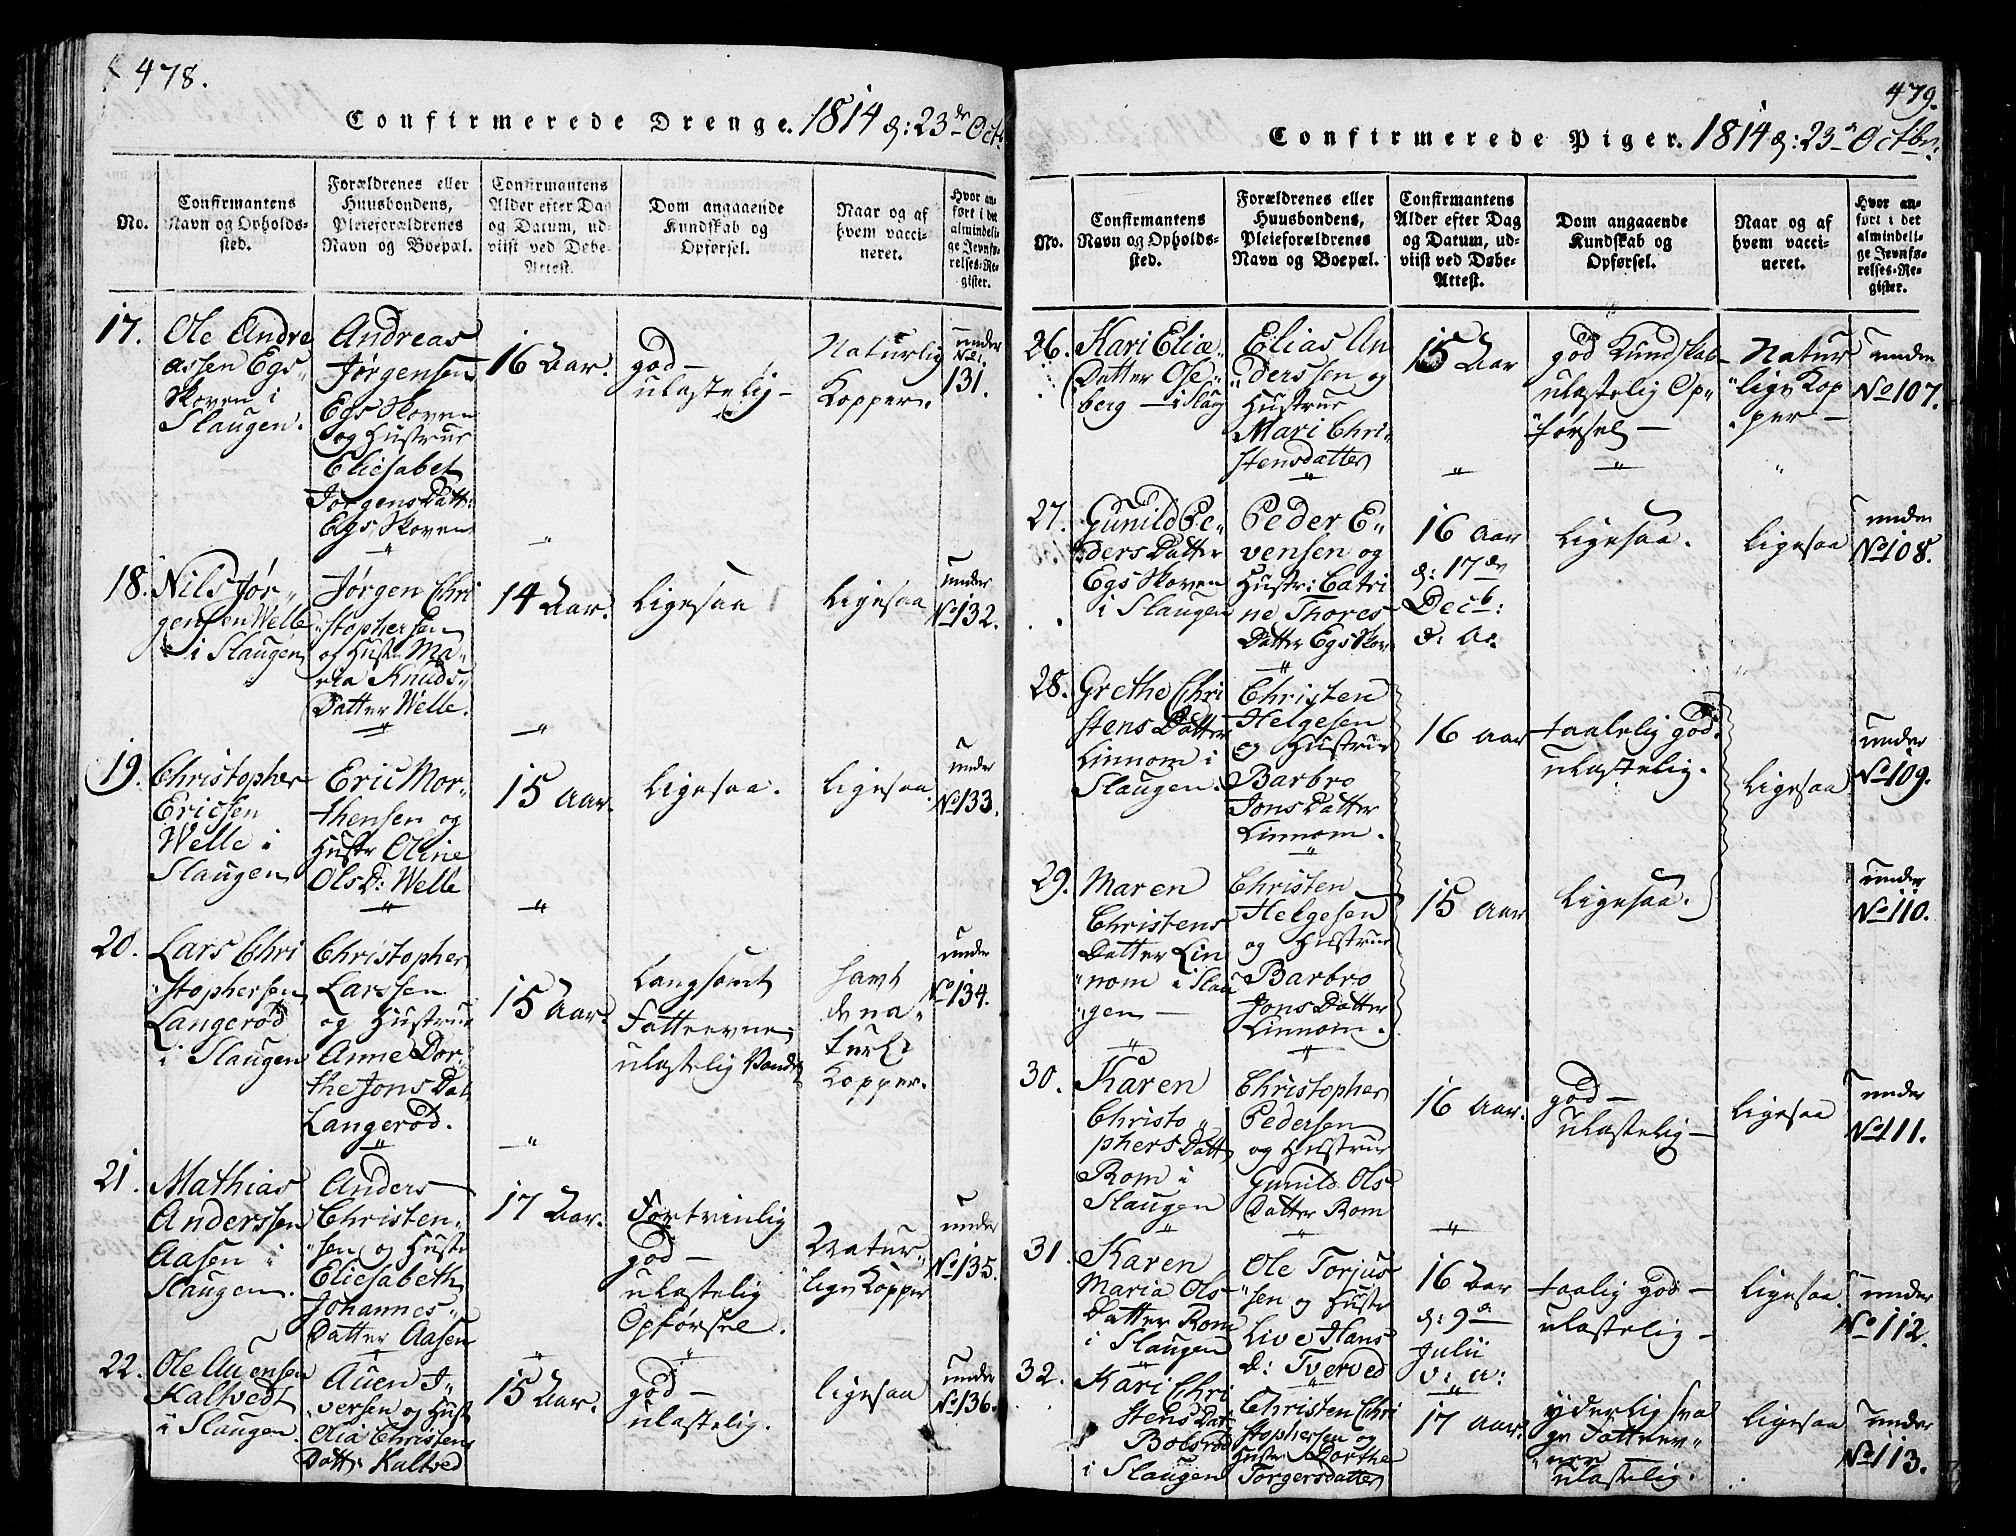 478.
Confirmerede Drenge. 1814 d: 23de Oct.
No.
Confirmantens
Navn og Opholds-
sted.
Forældrenes eller
Huusbondens,
Pleieforældrenes
Navn og Boepæl.
Confirmantens
Alder efter Dag
og Datum, ud-
viist ved Døbe-
Attest.
Dom angaaende
Kundskab og
Opførsel.
Naar og af
hvem vacci-
neret.
Hvor an-
ført i det
almindeli-
ge Jevnfø-
relses-Re-
gister.
17.
Ole Andre
assen Egs-
Skoven i
Slaugen.
Andreas
Jørgensen
Egs Skoven
og Hustrue
Eliesabet
Jørgens Datt:
Egs Skoven
16 Aar.
god -
ulastelig -
Naturlig
Kopper.
under
No.
131.
18.
Nils Jør-
gensen Welle
i Slaugen
Jørgen Chri
stophersen
og Hust: Ma-
ria Knuds-
Datter Welle.
14 Aar.
Ligesaa
Ligesaa
under
No 132.
19.
Christopher
Ericsen
Welle i
Slaugen
Eric Mor-
thensen og
Hustr Oline
Ols D: Welle
15 Aar.
Ligesaa.
Ligesaa.
under
No 133.
20.
Lars Chri
stophersen
Langerød
i Slaugen
Christopher
Larssen
og Hustrue
Anne Dor-
the Jons Dat
Langerød.
15 Aar.
Langsomt
Fatteevne,
ulastelig Vandel
havt
de na-
turl
Kopper.
under
No 134.
21.
Mathias
Anderssen
Aasen i
Slaugen.
Anders
Christen-
sen og Hustr
Eliesabeth
Johannes-
Datter Aasen
17 Aar.
Fortrinlig
god -
ulastelig
Opførsel.
Natur-
lige Kopper
under
No 135.
22.
Ole Auensen
Kaltvedt
i Slaugen.
Auen I-
versen og Hust
Olia Christens
Datt: Kaltved
15 Aar.
god -
ulastelig.
ligesaa
under
No 136.
479.
Confirmerede Piger. 1814 d: 23de Octbr.
No.
Confirmantens
Navn og Opholds-
sted.
Forældrenes eller
Huusbondens,
Pleieforældrenes
Navn og Boepæl.
Confirmantens
Alder efter Dag
og Datum, ud-
viist ved Døbe-
Attest.
Dom angaaende
Kundskab og
Opførsel.
Naar og af
hvem vacci-
neret.
Hvor an-
ført i det
almindeli-
ge Jevnfø-
relses-Re-
gister.
26.
Kari Eliæ
Datter Ose-
berg - i Slaug
Elias An
derssen og
Hustrue
Mari Chri-
stensdatter
15 Aar
god Kundskab -
ulastelig Op-
førsel -
Natur
lige Kop
per -
under
No 107.
27.
Gunild Pe-
ders Datter
Egs Skoven
i Slaugen
Peder E-
vensen og
Hustr: Catri
ne Thores-
Datter Egs Skov-
16 Aar
d: 17de
Decb:
d: A.
Ligesaa.
Ligesaa
under
No 108.
28.
Grethe Chri
stens Datter
Linnom i
Slaugen.
Christen
Helgesen
og Hustrue
Barbro
Jons Datter
Linnom.
16 Aar
taalelig god.
ulastelig.
Ligesaa
under
No 109.
29.
Maren
Christens
Datter Lin
nom i Slau
gen -
Christen
Helgesen
og Hustrue
Barbro
Jons Datter
Linnom.
15 Aar
Ligesaa.
under
No 110.
30.
Karen
Christo-
phers Datt
Rom i
Slaugen
Christopher
Pedersen
og Hustrue
Gunild Ols
Datter Rom
16 Aar.
god -
ulastelig -
Ligesaa
under
No 111.
31.
Karen
Maria Ols
Datter Rom
i Slaugen
Ole Torjus
sen og Hustr
Live Hans
D: Tverved
16 Aar
d: 9de
Julii
v: a:
taalig god -
ulastelig -
Ligesaa
under
No 112.
32.
Kari Chri
stens Dat
Bolsrød
i Slaugen
Christen Chri
stophersen og
Hustr Dorthe
Torgersdatter
17 Aar.
yderlig sva
ge Fatteev-
ner
ulastelig.
Ligesaa
under
No 113.